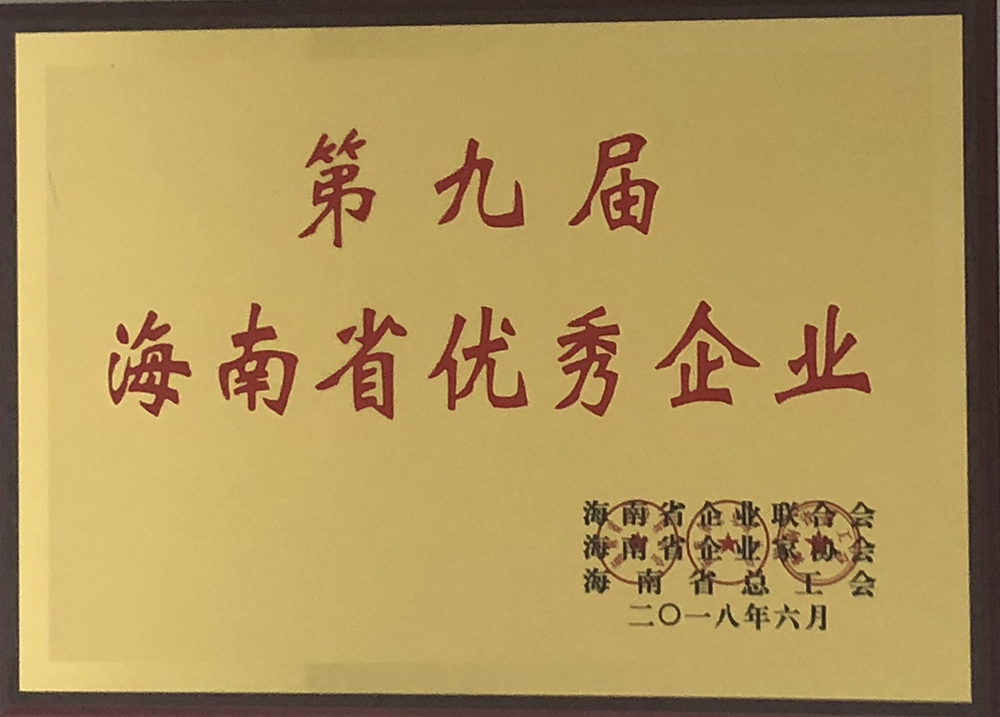 第九届
海南省优秀企业
海南省企业联合会
海南省企业家协会
海南省总工会
二〇一八年六月